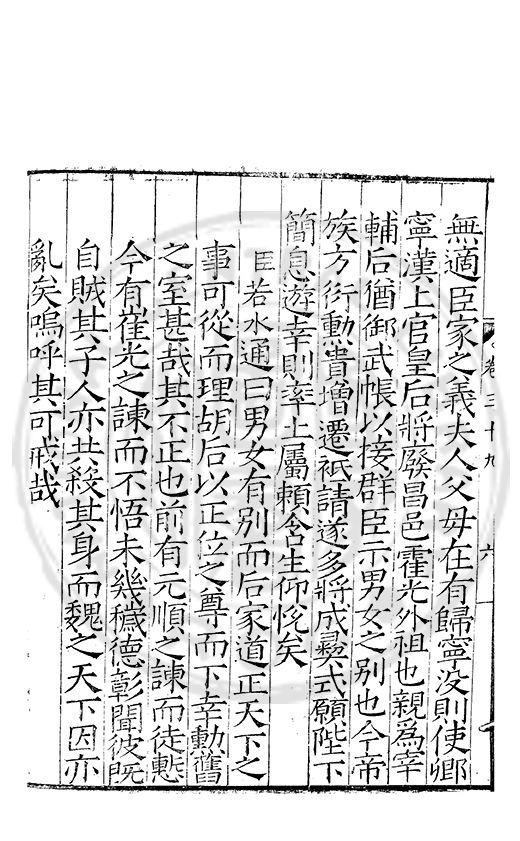 卷三十九
六
無適臣家之義夫人父母在有歸寧没則使卿
寧漢上官皇后將廢昌邑霍光外祖也親爲宰
輔后猶御武帳以接群臣示男女之别也今帝
族方衍勳貴增遷祇請遂多將成彛式願陛下
簡息遊幸則率土屬賴含生仰悦矣
臣若水通曰男女有别而后家道正天下之
事可從而理胡后以正位之尊而下幸勳舊
之室甚哉其不正也前有元順之諫而徒慙
今有崔光之諫而不悟未幾穢德彰聞彼既
自賊其子人亦共殺其身而魏之天下因亦
亂矣嗚呼其可戒哉